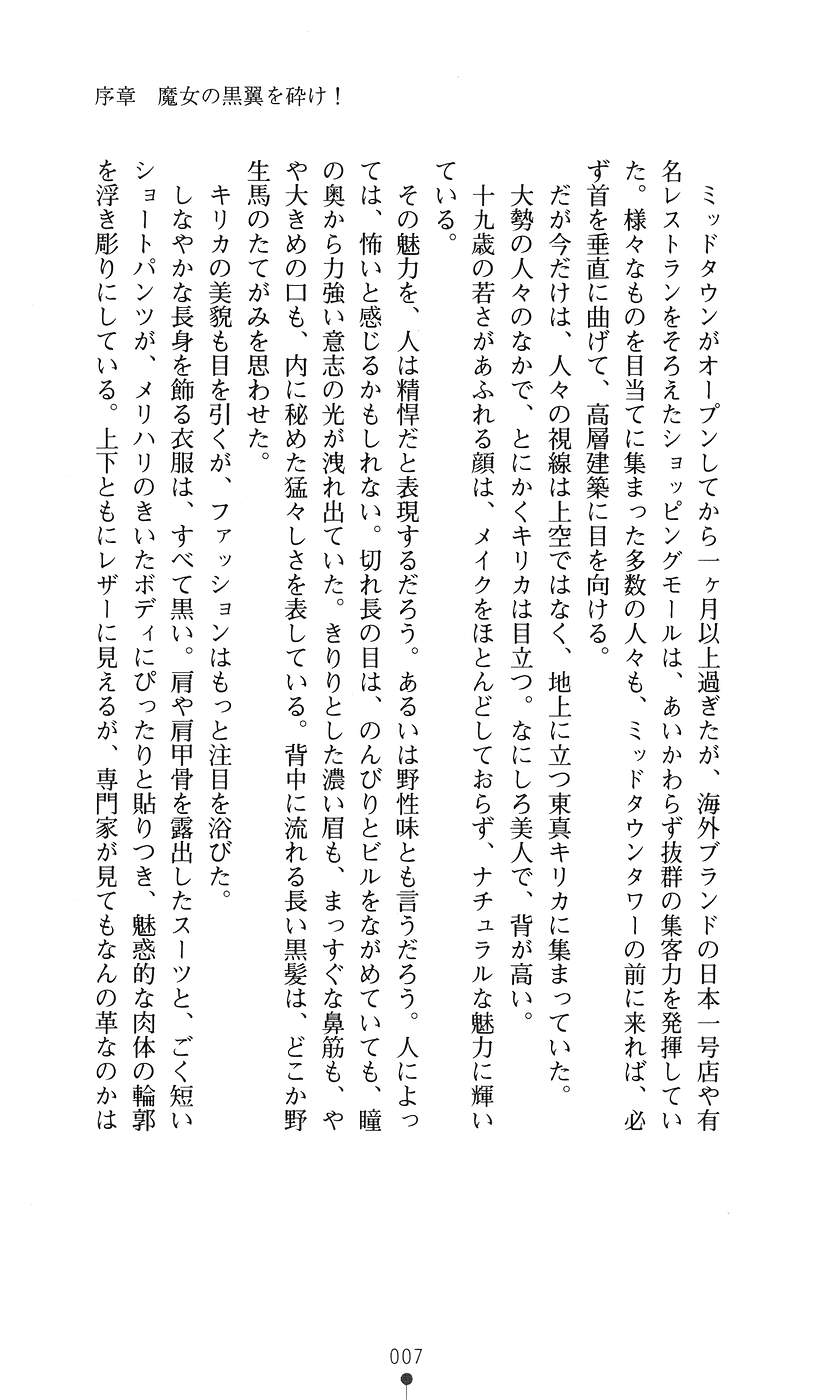 序章　魔女の黒翼を砕け！
　ミッドタウンがオープンしてから一ヶ月以上過ぎたが、海外ブランドの日本一号店や有
名レストランをそろえたショッピングモールは、あいかわらず抜群の集客力を発揮してい
た。様々なものを目当てに集まった多数の人々も、ミッドタウンタワーの前に来れば、必
ず首を垂直に曲げて、高層建築に目を向ける。
　だが今だけは、人々の視線は上空ではなく、地上に立つ東真キリカに集まっていた。
　大勢の人々のなかで、とにかくキリカは目立つ。なにしろ美人で、背が高い。
　十九歳の若さがあふれる顔は、メイクをほとんどしておらず、ナチュラルな魅力に輝い
ている。
　その魅力を、人は精悍だと表現するだろう。あるいは野性味とも言うだろう。人によっ
ては、怖いと感じるかもしれない。切れ長の目は、のんびりとビルをながめていても、瞳
の奥から力強い意志の光が洩れ出ていた。きりりとした濃い眉も、まっすぐな鼻筋も、や
や大きめの口も、内に秘めた猛々しさを表している。背中に流れる長い黒髪は、どこか野
生馬のたてがみを思わせた。
　キリカの美貌も目を引くが、ファッションはもっと注目を浴びた。
　しなやかな長身を飾る衣服は、すべて黒い。肩や肩甲骨を露出したスーツと、ごく短い
ショートパンツが、メリハリのきいたボディにぴったりと貼りつき、魅惑的な肉体の輪郭
を浮き彫りにしている。上下ともにレザーに見えるが、専門家が見てもなんの革なのかは
007